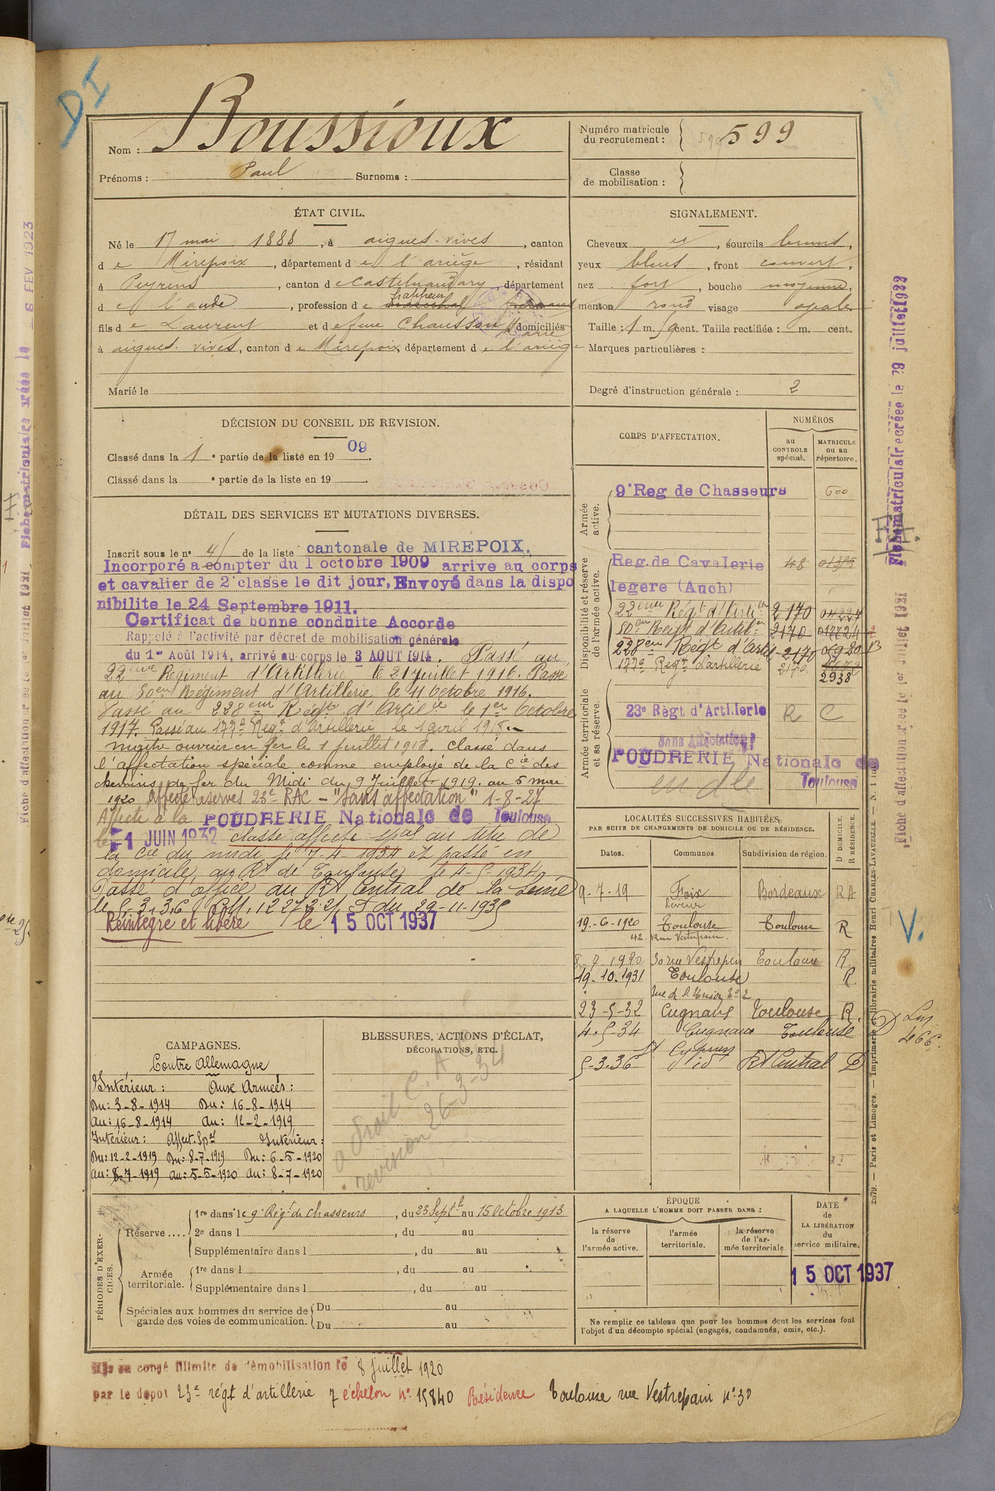 DI
Nom : Boussioux
Prénoms : Paul Surnoms :
Numéro matricule du recrutement : 599
Classe de mobilisation :
ÉTAT CIVIL.
Né le 17 mai 1888, à aigues-vives, canton
de Mirepoix, département de l'ariège, résidant
à Peyrens, canton de Castelnaudary, département
de l'aude, profession de frappeur
fils de Laurent et de feue Chausson Marie domiciliés
à aigues-vives, canton de Mirepoix, département de l'ariège
Marié le
SIGNALEMENT.
Cheveux et, sourcils bruns,
yeux bleus, front couvert,
nez fort, bouche moyenne,
menton rond visage ovale
Taille : 1 m. cent. Taille rectifiée : m. cent.
Marques particulières :
Degré d'instruction générale : 2
DÉCISION DU CONSEIL DE REVISION.
Classé dans la 1e partie de la liste en 1909.
Classé dans la e partie de la liste en 19 .
DÉTAIL DES SERVICES ET MUTATIONS DIVERSES.
Inscrit sous le no 41 de la liste cantonale de MIREPOIX.
Incorporé a compter du 1 octobre 1909 arrive au corps
et cavalier de 2e classe le dit jour, Envoyé dans la dispo
nibilite le 24 Septembre 1911.
Certificat de bonne conduite Accorde
Rappelé à l'activité par décret de mobilisation générale
du 1er Août 1914, arrivé au corps le 3 AOUT 1914. Passé au
22eme Régiment d'Artillerie le 21 juillet 1916. Passé
au 50em Régiment d'Artillerie le 11 Octobre 1916.
Passé au 228em Régt d'Artillie le 1er Octobre
1917. Passé au 177e Régt d'Artillerie le 1 avril 1918.-
ouvrier en fer le 1 juillet 1918. Classé dans
l'affectation spéciale comme employé de la Cie des
chemins de fer du Midi du 9 Juillet 1919 au 5 mai
1920 Affecté réserves 23e RAC - "Sans affectation" 1-8-27
Affecté à la POUDRERIE Nationale de Toulouse
le -1 JUIN 1932 classé affecté spal au titre de
la Cie du midi le 7-4-1934 et passé en
domicile au Rt de Toulouse le
Passé d'office au Rt Central de la Seine
le 5-3-36 du 29-11-1935
Réintégré et libéré le 15 OCT 1937
CORPS D'AFFECTATION.
NUMÉROS
au CONTROLE spécial.
MATRICULE ou au répertoire.
Armée active.
9e Reg de Chasseurs 600
Disponibilité et réserve de l'armée active.
Reg. de Cavalerie 48
legere (Auch)
22eme Régt d'Artie 2170
50em Régt d'Artie 2170
228em Régt d'Artie 2170
177e Régt d'artillerie 2170
2938
Armée territoriale et sa réserve.
23e Règt d'Artillerie R C
Sans Affectation
POUDRERIE Nationale de
Toulouse
LOCALITÉS SUCCESSIVES HABITÉES
PAR SUITE DE CHANGEMENTS DE DOMICILE OU DE RÉSIDENCE.
Dates. Communes Subdivision de région. D DOMICILE. R RÉSIDENCE.
9-7-19 Foix Bordeaux RA
19-6-1920 Toulouse Toulouse R
8.7.1920 30 rue Vestrepain Toulouse R
19.10.1931 Toulouse R
23-5-32 Cugnaux Toulouse R
4.5-34 Cugnaux Toulouse D
5-3-36 St Cyprien Rt Central D
CAMPAGNES.
Contre Allemagne
Intérieur : Aux Armées :
Du : 3-8-1914 Du : 16-8-1914
au : 16-8-1914 au : 12-2-1919
Intérieur : Affect. Sple Intérieur :
Du : 12-2-1919 Du : 8-7-1919 Du : 6-5-1920
au : 8-7-1919 au : 5-5-1920 au : 8-7-1920
BLESSURES, ACTIONS D'ÉCLAT,
DÉCORATIONS, ETC.
revision 26-3-34
PÉRIODES D'EXERCICES.
Réserve .... 1re dans le 9e Régt de Chasseurs, du 23 Septbre au 15 Octobre 1913
2e dans l , du au
Supplémentaire dans l , du au
Armée territoriale. 1re dans l , du au
Supplémentaire dans l , du au
Spéciales aux hommes du service de garde des voies de communication. Du au
Du au
ÉPOQUE
A LAQUELLE L'HOMME DOIT PASSER DANS :
la réserve de l'armée active.
l'armée territoriale.
la réserve de l'armée territoriale
DATE de LA LIBÉRATION du service militaire.
15 OCT 1937
Ne remplir ce tableau que pour les hommes dont les services font
l'objet d'un décompte spécial (engagés, condamnés, omis, etc.).
Mis en congé illimité de démobilisation le 8 Juillet 1920
par le depot 23e régt d'artillerie 7 échelon no 15840 Résidence Toulouse rue Vestrepain no 30
Fiche matriculaire créée le 29 juillet 1932
Fiche d'affectation créée le 1er juillet 1931
V.
2079. — Paris et Limoges. — Imprimerie Librairie militaires Henri CHARLES-LAVAUZELLE.